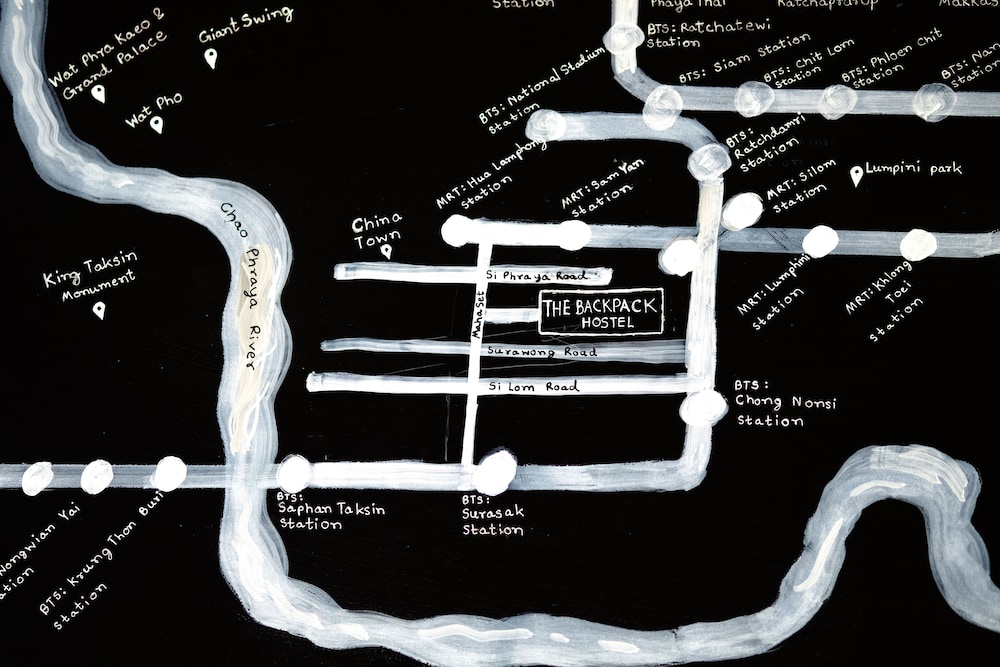 Station
Phaya Thai
Ratchaprarop
Makkas
Wat Phra Kaeo &
Grand Palace
Giant Swing
Wat Pho
BTS: Ratchatewi
Station
BTS: Siam Station
BTS: Chit Lom
Station
BTS: Phloen Chit
Station
BTS: Nan
Station
BTS: National Stadium
Station
BTS:
Ratchdamri
Station
MRT: Hua Lamphong
Station
MRT: Sam Yan
Station
MRT: Silom
Station
Lumpini park
Chao Phraya River
China
Town
King Taksin
Monument
Si Phraya Road
Mahaset
THE BACKPACK
HOSTEL
Surawong Road
Si Lom Road
MRT: Lumphini
Station
MRT: Khlong
Toei
Station
BTS:
Chong Nonsi
Station
BTS:
Saphan Taksin
Station
BTS:
Surasak
Station
Wongwian Yai
ation
BTS: Krung Thon Buri
Station